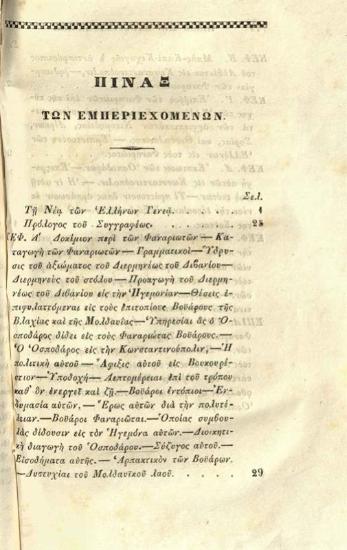 ΠΙΝΑΞ
ΤΩΝ ΕΜΠΕΡΙΕΧΟΜΕΝΩΝ.
Σελ.
Τῇ Νέᾳ τῶν Ἑλλήνων Γενεᾷ. . . . . . 1
Πρόλογος τοῦ Συγγραφέως. . . . . . 25
ΚΕΦ. Α' Δοκίμιον περὶ τῶν Φαναριωτῶν — Κα-
ταγωγὴ τῶν Φαναριωτῶν — Γραμματικοὶ — Ἵδρυ-
σις τοῦ ἀξιώματος τοῦ Διερμηνέως τοῦ Διβανίου —
Διερμηνεὺς τοῦ στόλου — Προαγωγὴ τοῦ Διερμη-
νέως τοῦ Διβανίου εἰς τὴν Ἡγεμονίαν — Θέσεις ἐ-
πιφυλαττόμεναι εἰς τοὺς ἐπιτοπίους Βοϋάρους τῆς
Βλαχίας καὶ τῆς Μολδαυΐας — Ὑπηρεσίαι ἃς ὁ Ὁσ-
ποδάρος δίδει εἰς τοὺς Φαναριώτας Βοϋάρους. —
Ὁ Ὁσποδάρος εἰς τὴν Κωνσταντινούπολιν, — Ἡ
πολιτικὴ αὐτοῦ — Ἄφιξις αὐτοῦ εἰς Βουκουρέ-
στιον — Ὑποδοχὴ — Λεπτομέρειαι ἐπὶ τοῦ τρόπου
καθ' ὃν ἐνεργεῖ καὶ ζῇ. — Βοϋάροι ἐντόπιοι — Ἐν-
δυμασία αὐτῶν, — Ἔρως αὐτῶν διὰ τὴν πολυτέ-
λειαν. — Βοϋάροι Φαναριῶται. — Ὁποίας συμβου-
λὰς δίδουσιν εἰς τὸν Ἡγεμόνα αὐτῶν. — Διοικητι-
κὴ διαγωγὴ τοῦ Ὁσποδάρου. — Σύζυγος αὐτοῦ. —
Εἰσοδήματα αὐτῆς. — Ἁρπακτικὸν τῶν Βοϋάρων.
— Δυστυχίαι τοῦ Μολδαυϊκοῦ λαοῦ. . . . . 29